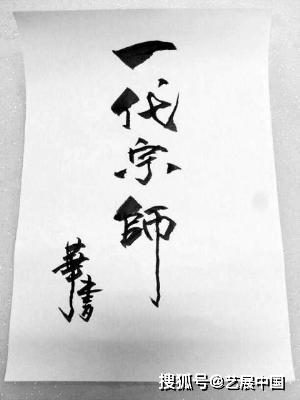 一代宗師
華書
搜狐号@艺展中国